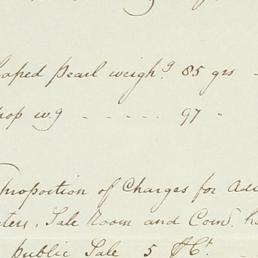 oaped Pearl weighg 85 grs -
rop wg - - - - - 97 "
Proportion of Charges for Ad
ters, Sale Room and Comn. h
public Sale 5 Ct. -